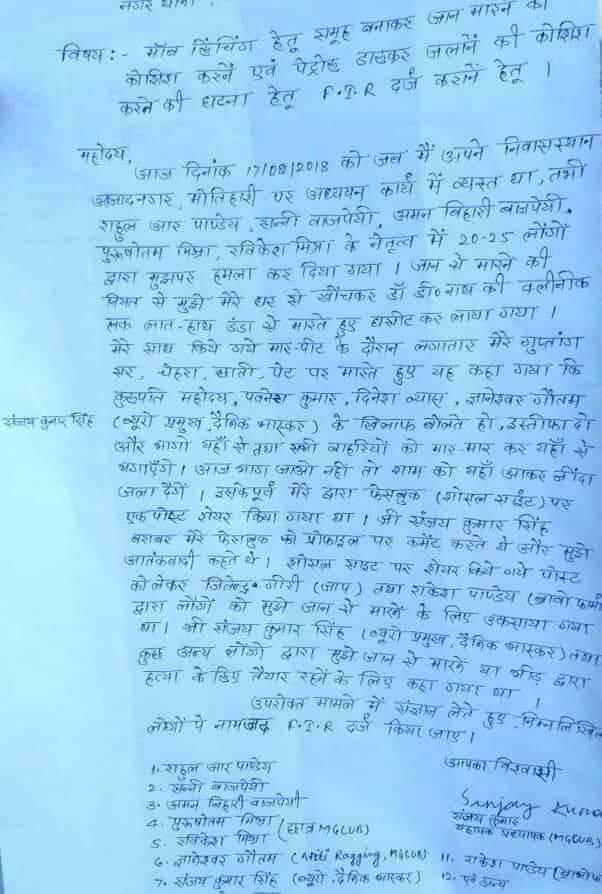 नगर थाना
विषय:- मॉब लिंचिंग हेतु समूह बनाकर जान मारने की
कोशिश करनें एवं पेट्रोल डालकर जलानें की कोशिश
करने की घटना हेतु F.I.R दर्ज करानें हेतु ।
महोदय,
आज दिनांक 17/08/2018 को जब मैं अपने निवासस्थान
आजादनगर, मोतिहारी पर अध्ययन कार्य में व्यस्त था, तभी
राहुल आर पाण्डेय, सन्नी वाजपेयी, अमन बिहारी बाजपेयी,
पुरूषोतम मिश्रा, रविकेश मिश्रा के नेतृत्व में 20-25 लोंगों
द्वारा मुझपर हमला कर दिया गया । जान से मारनें की
नियत से मुझे मेरे घर से खींचकर डॉ डी० नाथ की क्लीनीक
तक लात-हाथ डंडा से मारते हुए घसीट कर लाया गया ।
मेरे साथ किये गये मार-पीट के दौरान लगातार मेरे गुप्तांग
सर, चेहरा, छाती, पेट पर मारते हुए यह कहा गया कि
कुलपति महोदय, पवनेश कुमार, दिनेश व्यास, ज्ञानेश्वर गौतम
संजय कुमार सिंह (ब्यूरो प्रमुख, दैनिक भास्कर) के खिलाफ बोलते हो, इस्तीफा दो
और भागो यहाँ से तथा सभी बाहरियों को मार-मार कर यहाँ से
भगाएँगे । आज भाग जाओ नहीं तो शाम को यहाँ आकर जींदा
जला देंगें । इसके पूर्व मेरे द्वारा फेसबुक (शोसल साईट) पर
एक पोस्ट शेयर किया गया था । श्री संजय कुमार सिंह
बराबर मेरे फेसबुक की प्रोफाइल पर कमेंट करते थे और मुझे
आतंकबादी कहते थे । शोसल साइट पर शेयर किये गये पोस्ट
को लेकर जितेन्द्र गीरी (जाप) तथा राकेश पाण्डेय (ब्रावो फार्मा
द्वारा लोंगों को मुझे जान से मारनें के लिए उकसाया गया
था । श्री संजय कुमार सिंह (ब्यूरो प्रमुख, दैनिक भास्कर) तथा
कुछ अन्य लोंगो द्वारा मुझे जान से मारनें या भीड़ द्वारा
हत्या के लिए तैयार रहनें के लिए कहा गया था ।
उपरोक्त मामले में संज्ञान लेते हुए निम्नलिखित
लोगों पे नामजद F.I.R दर्ज किया जाए ।
आपका विश्वासी
1. राहुल आर पाण्डेय
2. सन्नी वाजपेयी
3. अमन बिहारी वाजपेयी
4. पुरूषोतम मिश्रा
5. रविकेश मिश्रा (छात्र MGCUB)
6. ज्ञानेश्वर गौतम (Anti Ragging, MGCUB)
7. संजय कुमार सिंह (ब्यूरो, दैनिक भास्कर)
Sanjay Kumar
संजय कुमार
सहायक प्राध्यापक (MGCUB)
11. राकेश पाण्डेय (ब्रावो फा
12. एवं अन्य